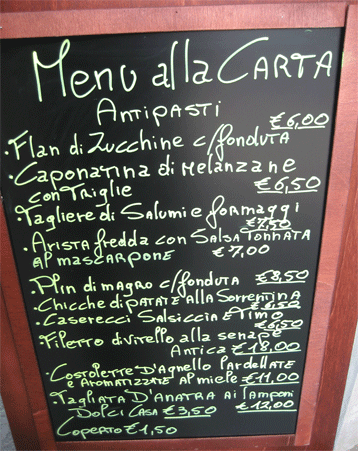 Menu alla CARTA
ANTIPASTI
€6,00
• Flan di Zucchine c/fonduta
• Caponatina di Melanzane
con Triglie €6,50
• Tagliere di Salumi e formaggi
€7,50
• Arista fredda con Salsa Tonnata
al mascarpone €7,00
• Plin di magro c/fonduta €8,50
• Chicche di patate alla Sorrentina
€6,50
• Caserecci Salsiccia e Timo
€6,50
Filetto di vitello alla senape
Antica €18,00
• Costolette D'Agnello Lardellate
e Aromatizzate al miele €11,00
• Tagliata D'anatra ai lamponi
€12,00
Dolci Casa €3,50
Coperto €1,50